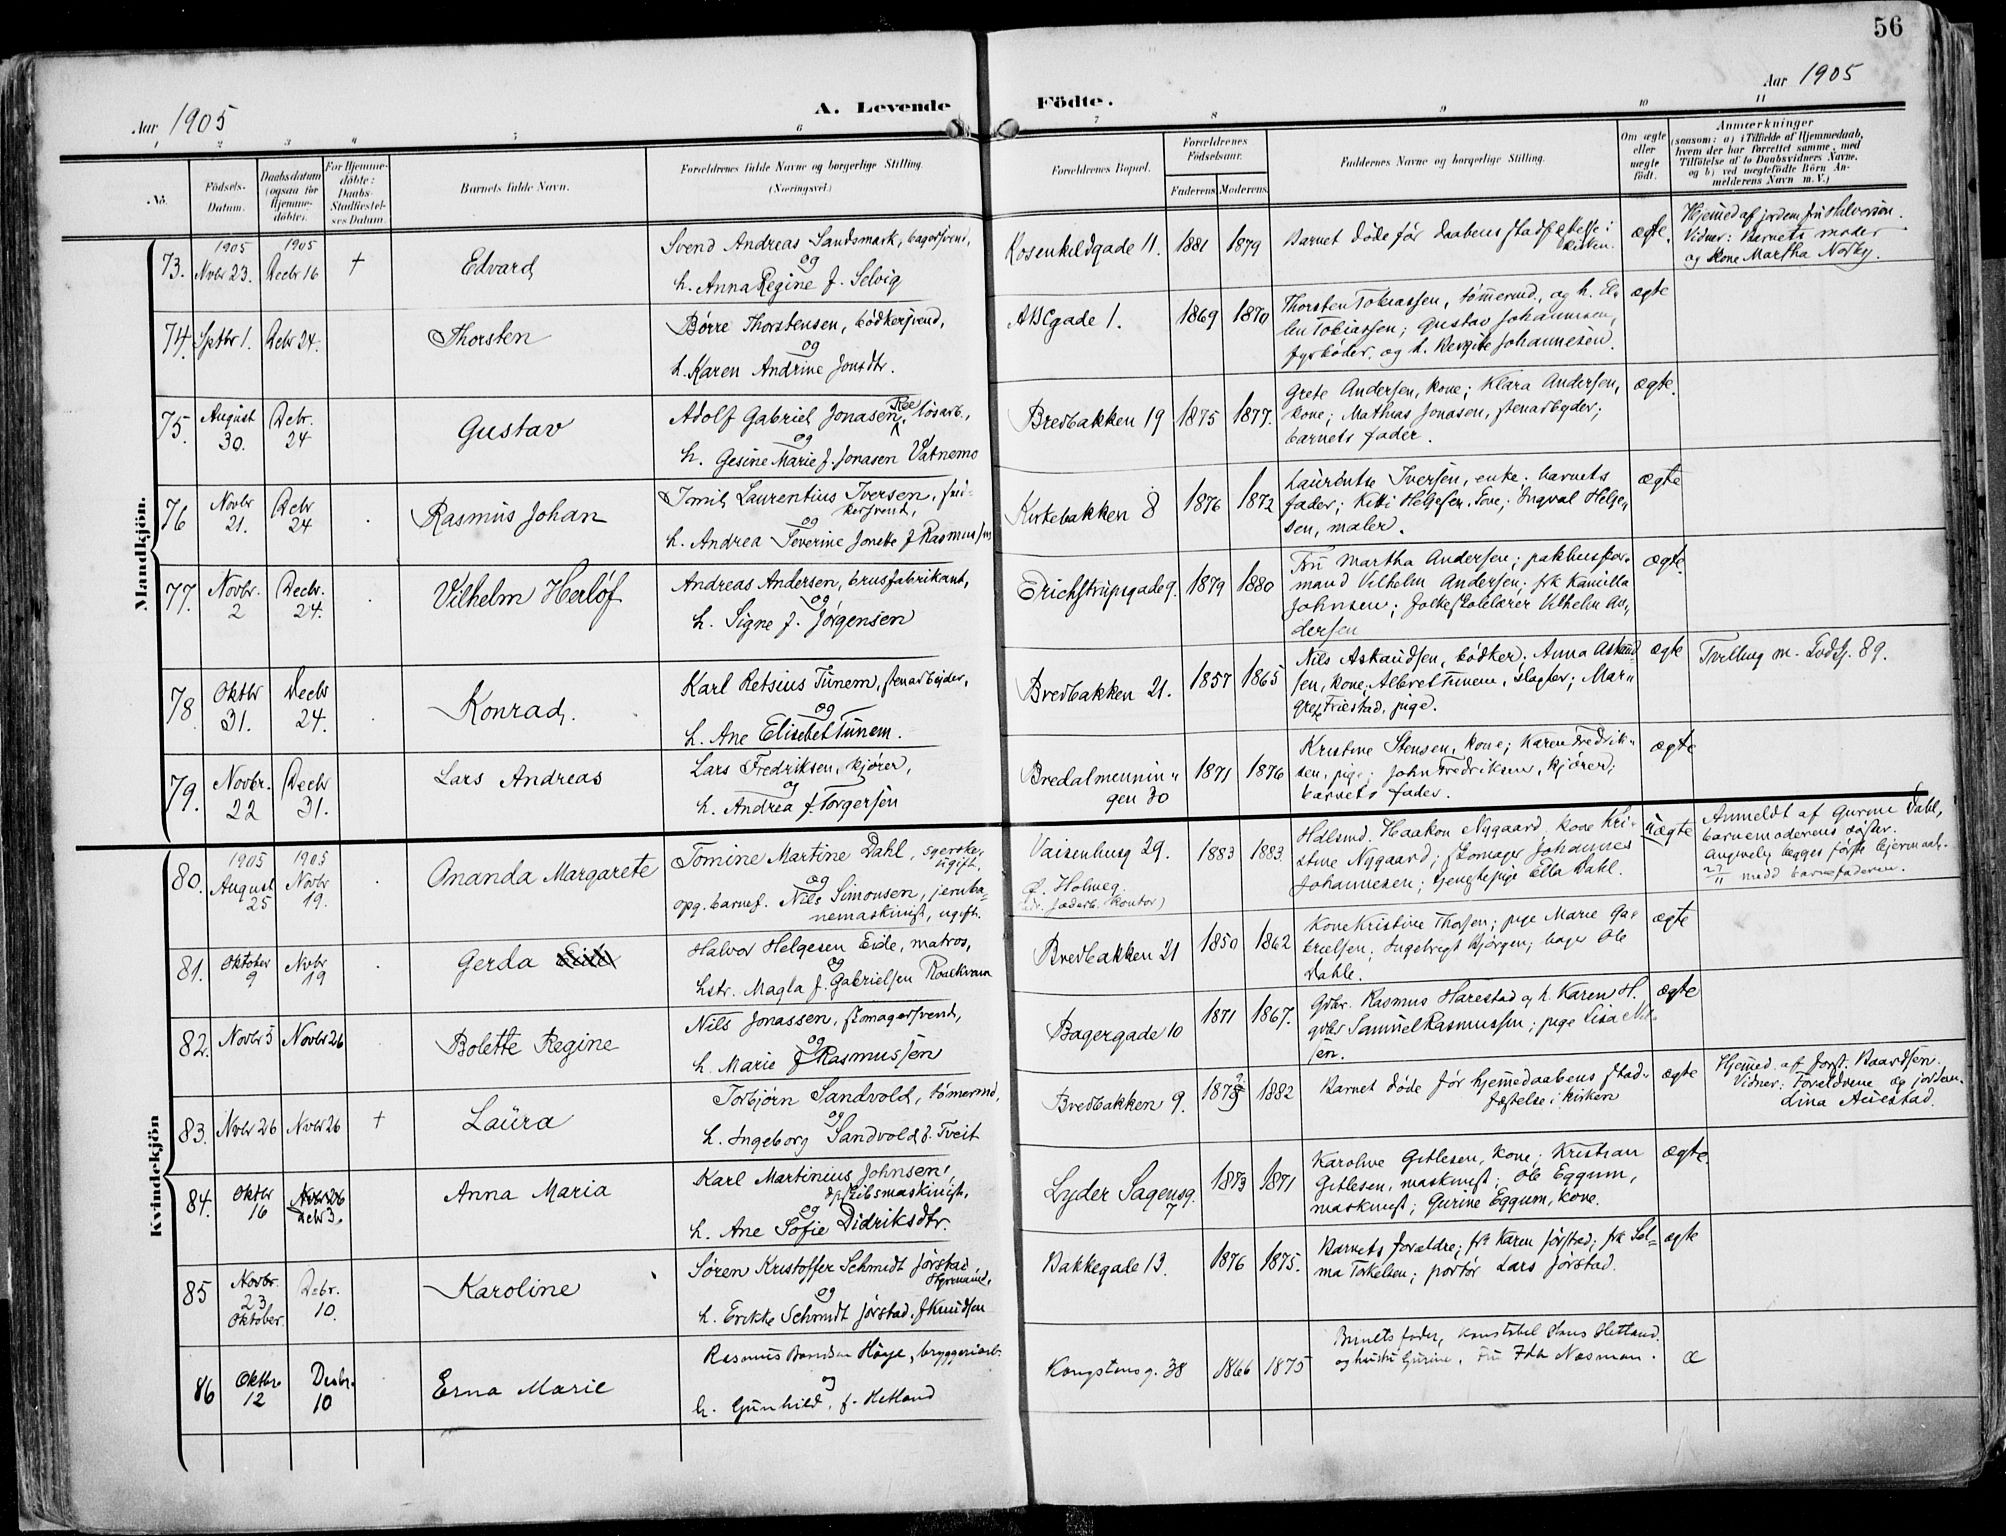 56
Aar 1905
A. Levende Födte.
Aar 1905
1 2 3 4 5 6 7 8 9 10 11
No.
Födsels-Datum.
Daabsdatum (ogsaa for Hjemmedöbte).
For Hjemmedöbte: Daabs-Stadfæstelses Datum.
Barnets fulde Navn.
Forældrenes fulde Navne og borgerlige Stilling. (Næringsvei.)
Forældrenes Bopæl.
Forældrenes Födselsaar.
Faderens. Moderens.
Faddernes Navne og borgerlige Stilling.
Om ægte eller uægte födt.
Anmærkninger
(saasom: a) i Tilfælde af Hjemmedaab, hvem der har forrettet samme, med Tilföielse af to Daabsvidners Navne, og b) ved uægtefödte Börn Anmelderens Navn m. V.)
Mandkjön.
73. 1905 Novbr 23. 1905 Decbr 16 † Edvard
Svend Andreas Sandsmark, bagersvend,
og
h. Anna Regine f. Selvig
Rosenkildgade 11. 1881 1879
Barnet døde før daabens stadfæstelse i kirken.
ægte.
Hjemmed af jordem. fru Halvorsen.
Vidner: Barnets moder
og kone Martha Norby.
74. Sptbr 1. Decbr 24. Thorsten
Børre Thorstensen, bødkersvend,
og
h. Karen Andrine Jonsdtr.
ABCgade 1. 1869 1870
Thorsten Tobiassen, tømmermd., og h. El-
len Tobiassen; Gustav Johannesen,
fyrbøder, og h. Bergite Johannesen.
ægte
75. August 30. Decbr. 24 Gustav
Adolf Gabriel Jonasen Ree, løsarb.,
og
h. Gesine Marie f. Jonasen Vatnemo
Bredbakken 19 1875 1877.
Grete Andersen, kone; Klara Andersen,
kone; Mathias Jonasen, stenarbyder;
barnets fader.
ægte.
76 Novbr 21. Decbr 24 Rasmus Johan
Tomil Laurentius Iversen,
og
h. Andrea Severine Jonette f Rasmussen
Kirkebakken 8 1876 1872
Laurentse Iversen, enke; barnets
fader; Kitti Helgesen, kone; Ingval Helge-
sen, maler.
ægte
77. Novbr. 2 Decbr. 24. Vilhelm Herløf
Andreas Andersen, brusfabrikant,
og
h. Signe f. Jørgensen
Erichstrupsgade 9. 1879 1880
Fru Martha Andersen; pakhusfor-
mand Vilhelm Andersen; frk Kamilla
Johnsen; folkeskolelærer Vilhelm An-
dersen
ægte.
78. Oktbr 31. Decbr 24. Konrad.
Karl Retsius Tunem, stenarbejder,
og
h. Ane Elisebet Tunem.
Bredbakken 21. 1857 1865
Nils Askaudsen, bødker; Anna Askaud-
sen, kone; Albret Tunem, slagter; Mar-
grete Friestad, pige.
ægte
Tvilling m. Dødf. 89.
79. Novbr. 22 Decbr 31. Lars Andreas
Lars Fredriksen, kjører,
og
h. Andrea f Torgersen
Bredalmennin-
gen 30 1871 1876
Kristine Stensen, kone; Karen Fredrik-
sen, pige; John Fredriksen, kjører;
barnets fader.
ægte
Kvindekjön
80. 1905 August 25 1905 Novbr 19. Ananda Margarete
Tomine Martine Dahl, syerske, ugift,
og
opg. barnef. Nils Simonsen, jernba-
nemaskinist, ugift.
Vaisenhusg 29. 1883 1883.
Hdlsmd. Haakon Nygaard, kone Kri-
stine Nygaard; skomager Johannes
Johannesen; tjenestepige Ella Dahl.
uægte
Anmeldt af Gurine Dahl,
barnemoderens søster.
Angivelig begges første lejermaal.
27/11 medd barnefaderen.
81. Oktober 9 Novbr 19 Gerda Eide
Halvor Helgesen Eide, matros,
og
hstr. Magla f. Gabrielsen Roaldkvam
Bredbakken 21 1850 1862
Kone Kristine Thorsen; pige Marie Ga-
brielsen; Ingebregt Bjørgen; bager Ole
Dahle.
ægte
82. Novbr 5 Novbr 26 Bolette Regine
Nils Jonassen, skomagersvend,
og
h. Marie f Rasmussen
Bagergade 10 1871 1867.
Gdbr. Rasmus Harestad og h. Karen H.
gdbr Samuel Rasmussen; pige Lisa Nil-
sen.
ægte
83. Novbr 26 Novbr 26 † Laura
Torbjørn Sandvold, tømermd,
og
h. Ingeborg Sandvold f. Tveit
Bredbakken 9. 1882
Barnet døde før hjemmedaabens stad-
fæstelse i kirken
ægte
Hjemmed. af Jorst. Baardsen.
Vidner: Forældrene og jordem.
Lina Auestad.
84. Oktbr 16 Novbr 26 Decbr 3. Anna Maria
Karl Martinius Johnsen,
skibsmaskinist,
og
h. Ane Sofie Didriksdtr.
Lyder Sagensg. 7 1873 1871
Karoline Gitlesen, kone; Kristian
Gitlesen, maskinist; Ole Eggum,
maskinist; Gurine Eggum, kone.
ægte.
85 Novbr. 23 Oktober. Decbr. 10. Karoline
Søren Kristoffer Schmidt Jørstad,
styrmand,
og
h. Erikke Schmidt Jørstad, f Knudsen
Bakkegade 13. 1876 1875.
Barnets forældre; frk Karen Jørstad; frk Sel-
ma Torkelsen; portør Lars Jørstad.
ægte
86 Oktbr 12 Desbr. 10 Erna Marie
Rasmus Høye, bryggeriarb.
og
h. Gunhild, f. Hetland
Kongstensg. 38 1866 1875
Barnets fader, konstabel Hans Hetland
og hustru Gurine, Fru Ida Næsman.
æ